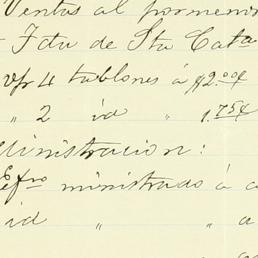 Ventas al pormenor
Fda de Sta Cata
vp 4 tablones á $2.00¢
" 2 id " 1.75¢
Ministracion:
Efvo ministrado á
id " a